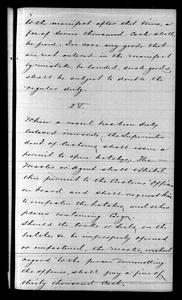 to the manifest after that time, a
fee of seven thousand Cash shall
be paid. In case any goods, that are
not entered in the manifest
by mistake, be landed, such goods
shall be subject to double the
regular duty.
IV.
When a vessel has been duly
entered inwards, the Superinten
dent of Customs shall issue a
permit to open hatches. The
Master or Agent shall exhibit
this permit to the Customs Officer
on board and shall request him
to unfasten the hatches and other
places containing Cargo.
Should the locks or seals on the
hatches be improperly opened
or unfastened, the master, without
regard to the person committing
the offence, shall pay a fine of
thirty thousand Cash.